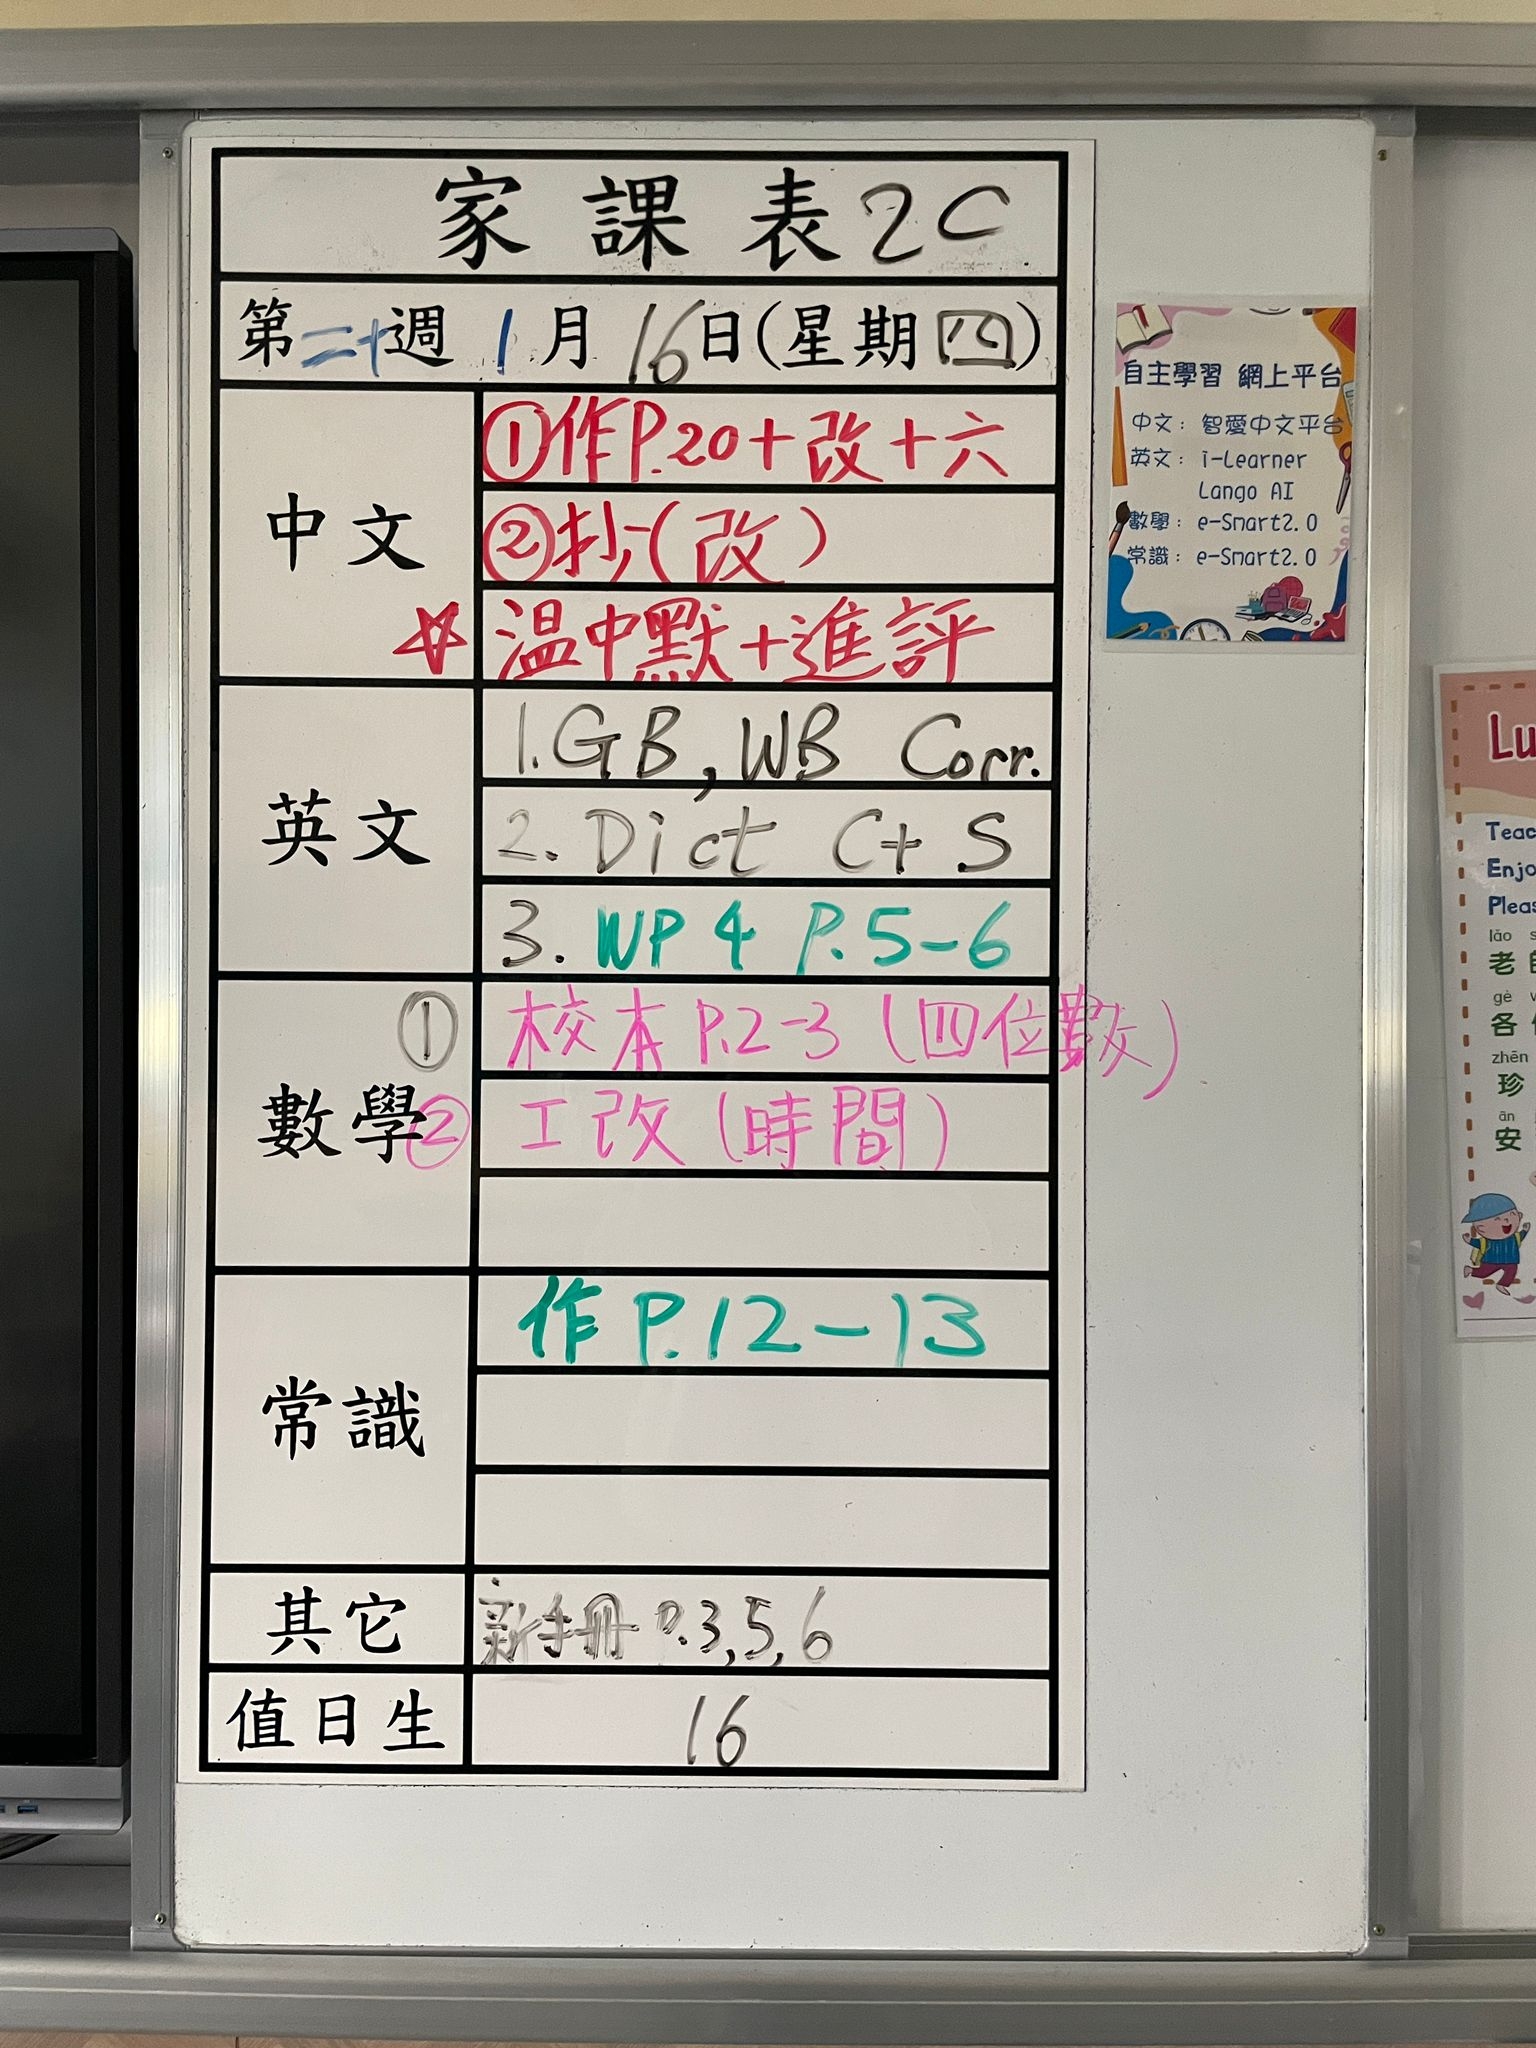 家課表2C
第二十週 1月16日(星期四)
中文
①作P.20+改+六
②抄(改)
☆温中默+進評
英文
1.GB, WB Corr.
2. Dict C+S
3. WP 4 P.5-6
數學
① 校本P.2-3 (四位數)
② 工改(時間)
常識
作P.12-13
其它
新手冊 P.3,5,6
值日生
16
自主學習 網上平台
中文: 智愛中文平台
英文: i-Learner
Lango AI
數學: e-Smart2.0
常識: e-Smart2.0
Lu
Teac
Enjo
Pleas
lǎo s
老
gè
各
zhēn
珍
ān
安